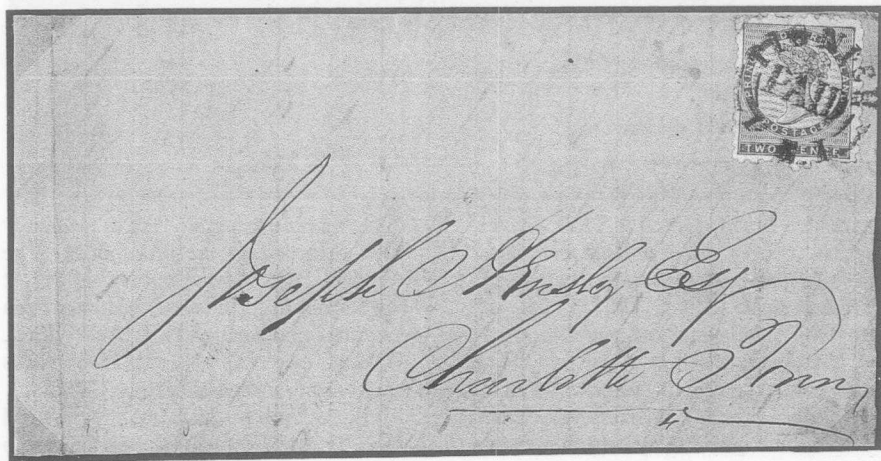 PAID
POSTAGE
TWO PENCE
Joseph Hensley Esq
Charlotte Town